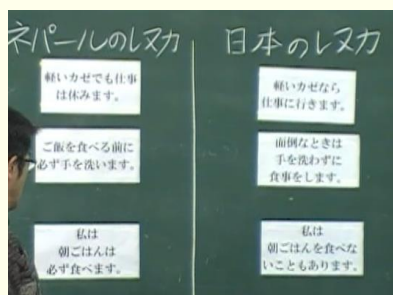 ネパールのレヌカ
軽いカゼでも仕事
は休みます。
ご飯を食べる前に
必ず手を洗います。
私は
朝ごはんは
必ず食べます。
日本のレヌカ
軽いカゼなら
仕事に行きます。
面倒なときは
手を洗わずに
食事をします。
私は
朝ごはんを食べな
いこともあります。